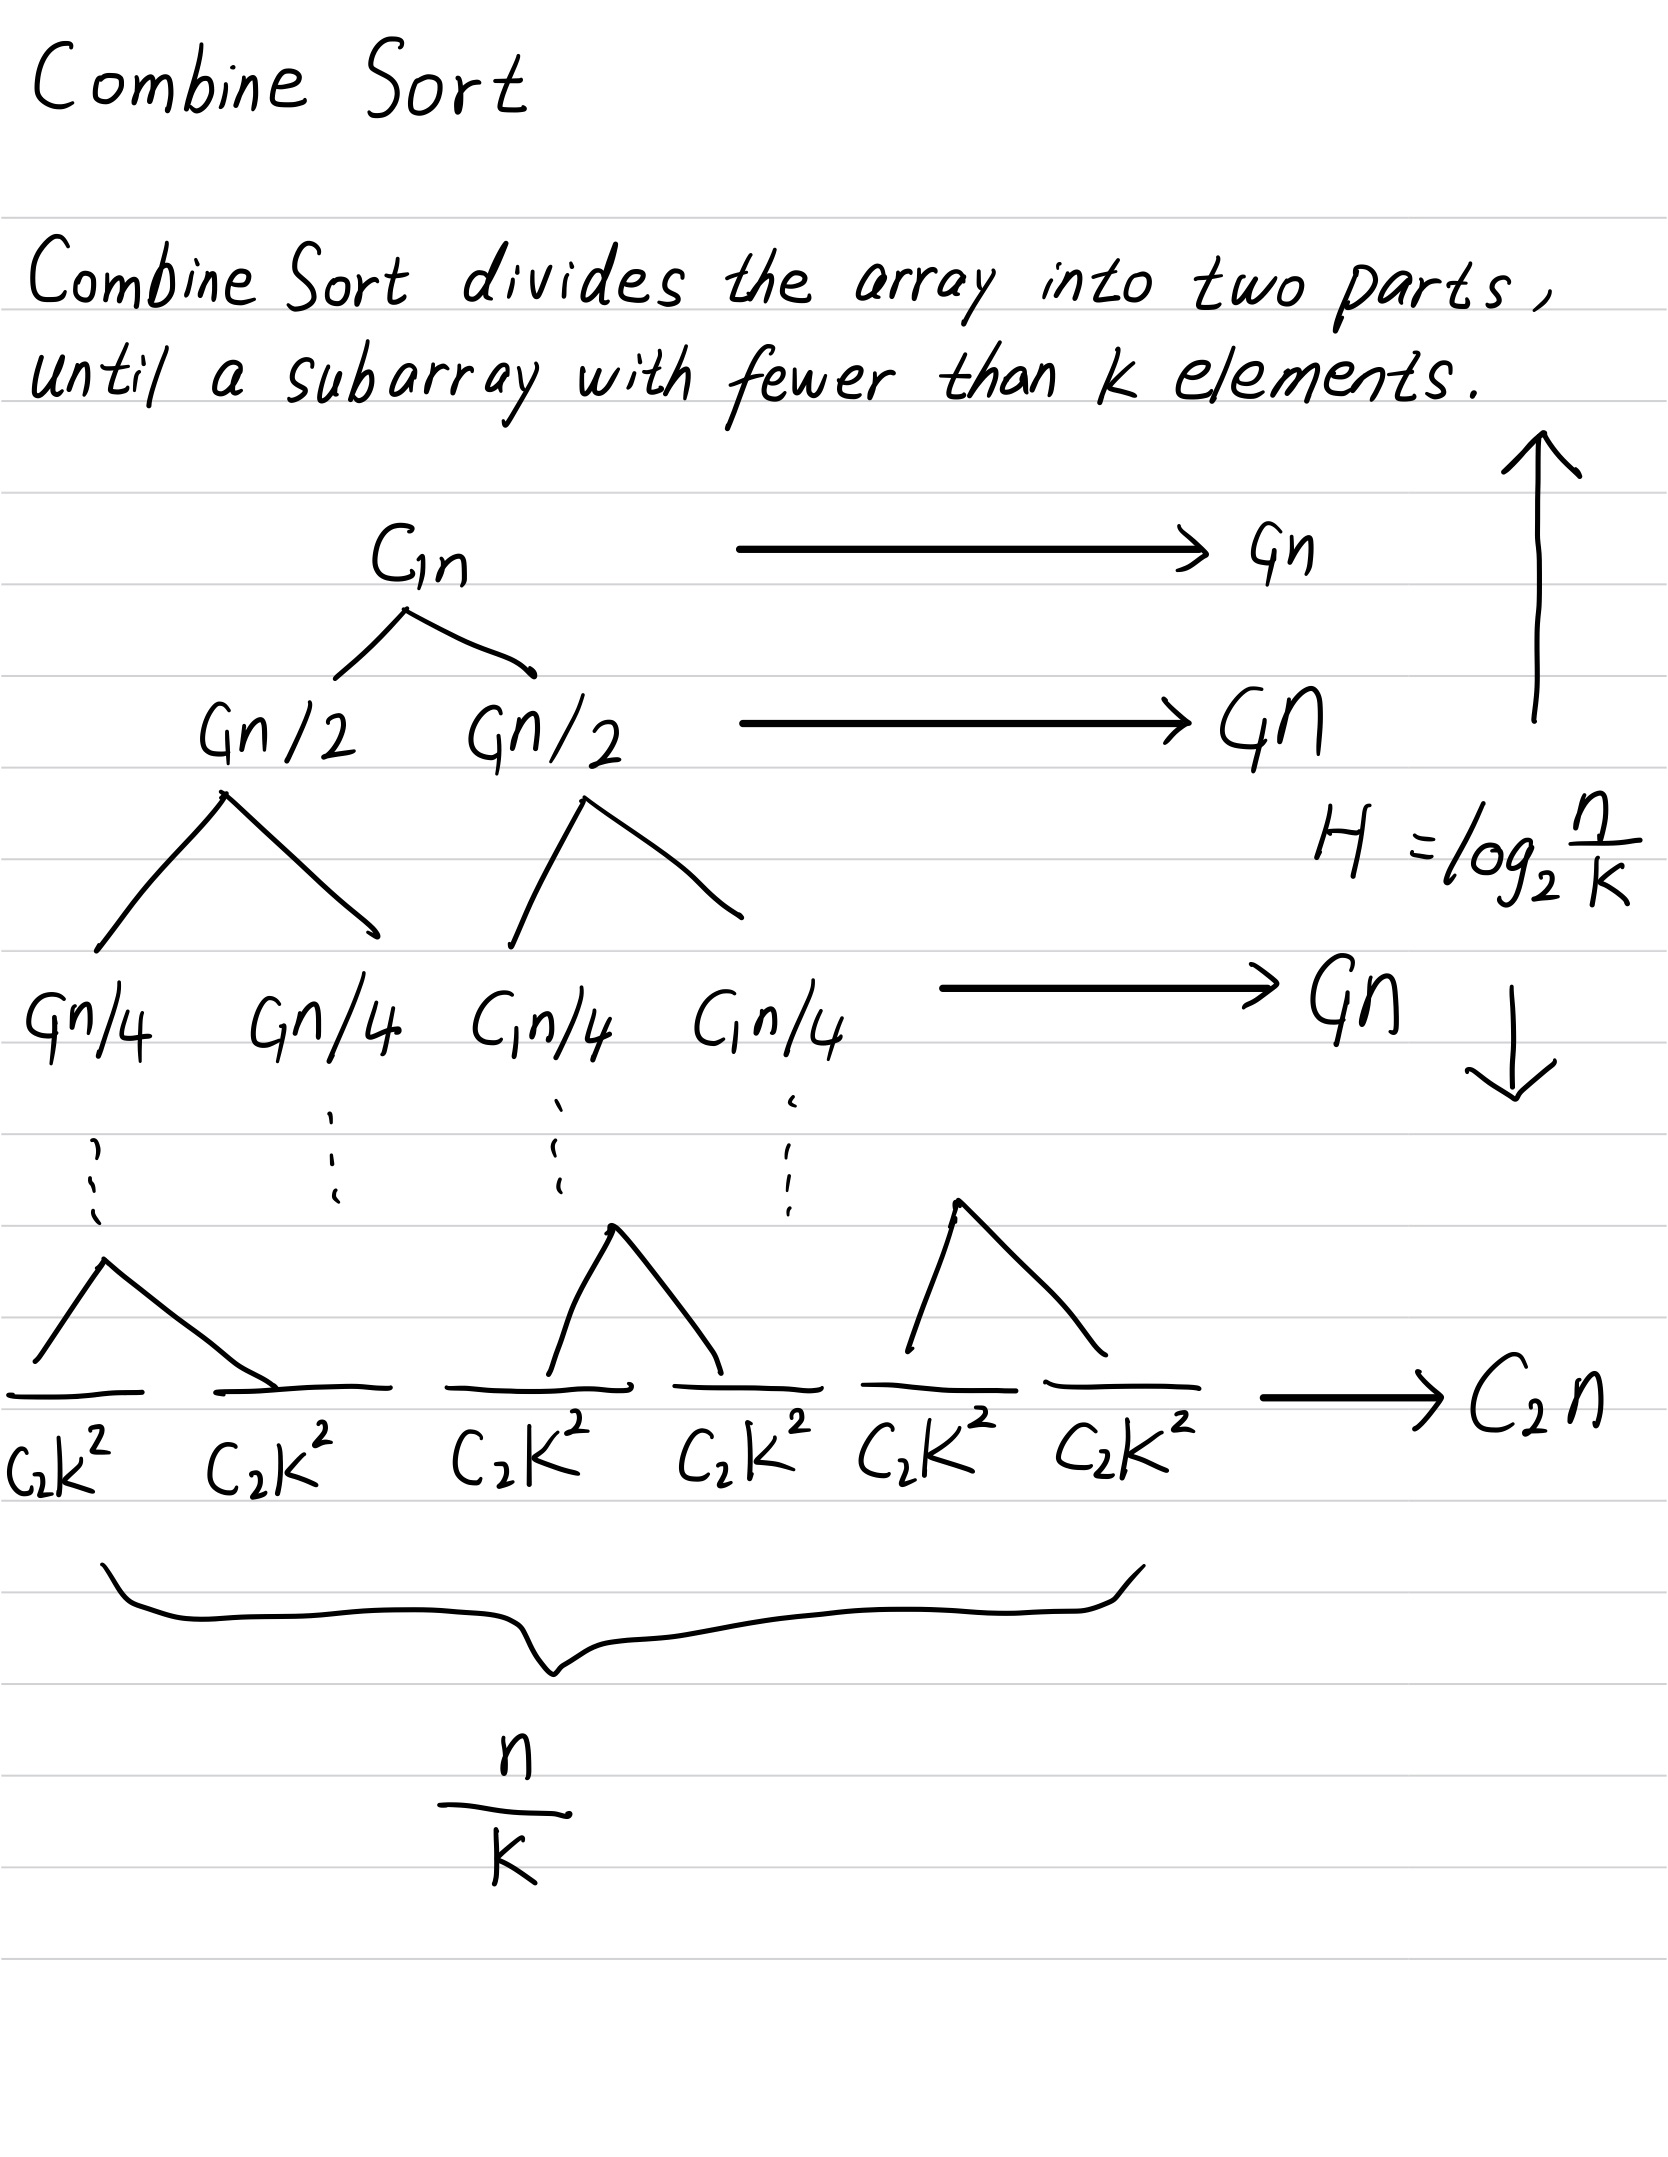 Combine Sort
Combine Sort divides the array into two parts,
until a subarray with fewer than k elements.
C₁n → C₁n
C₁n/2 C₁n/2 → C₁n
H = log₂ n/k
C₁n/4 C₁n/4 C₁n/4 C₁n/4 → C₁n
C₂k² C₂k² C₂k² C₂k² C₂k² C₂k² → C₂n
n/k